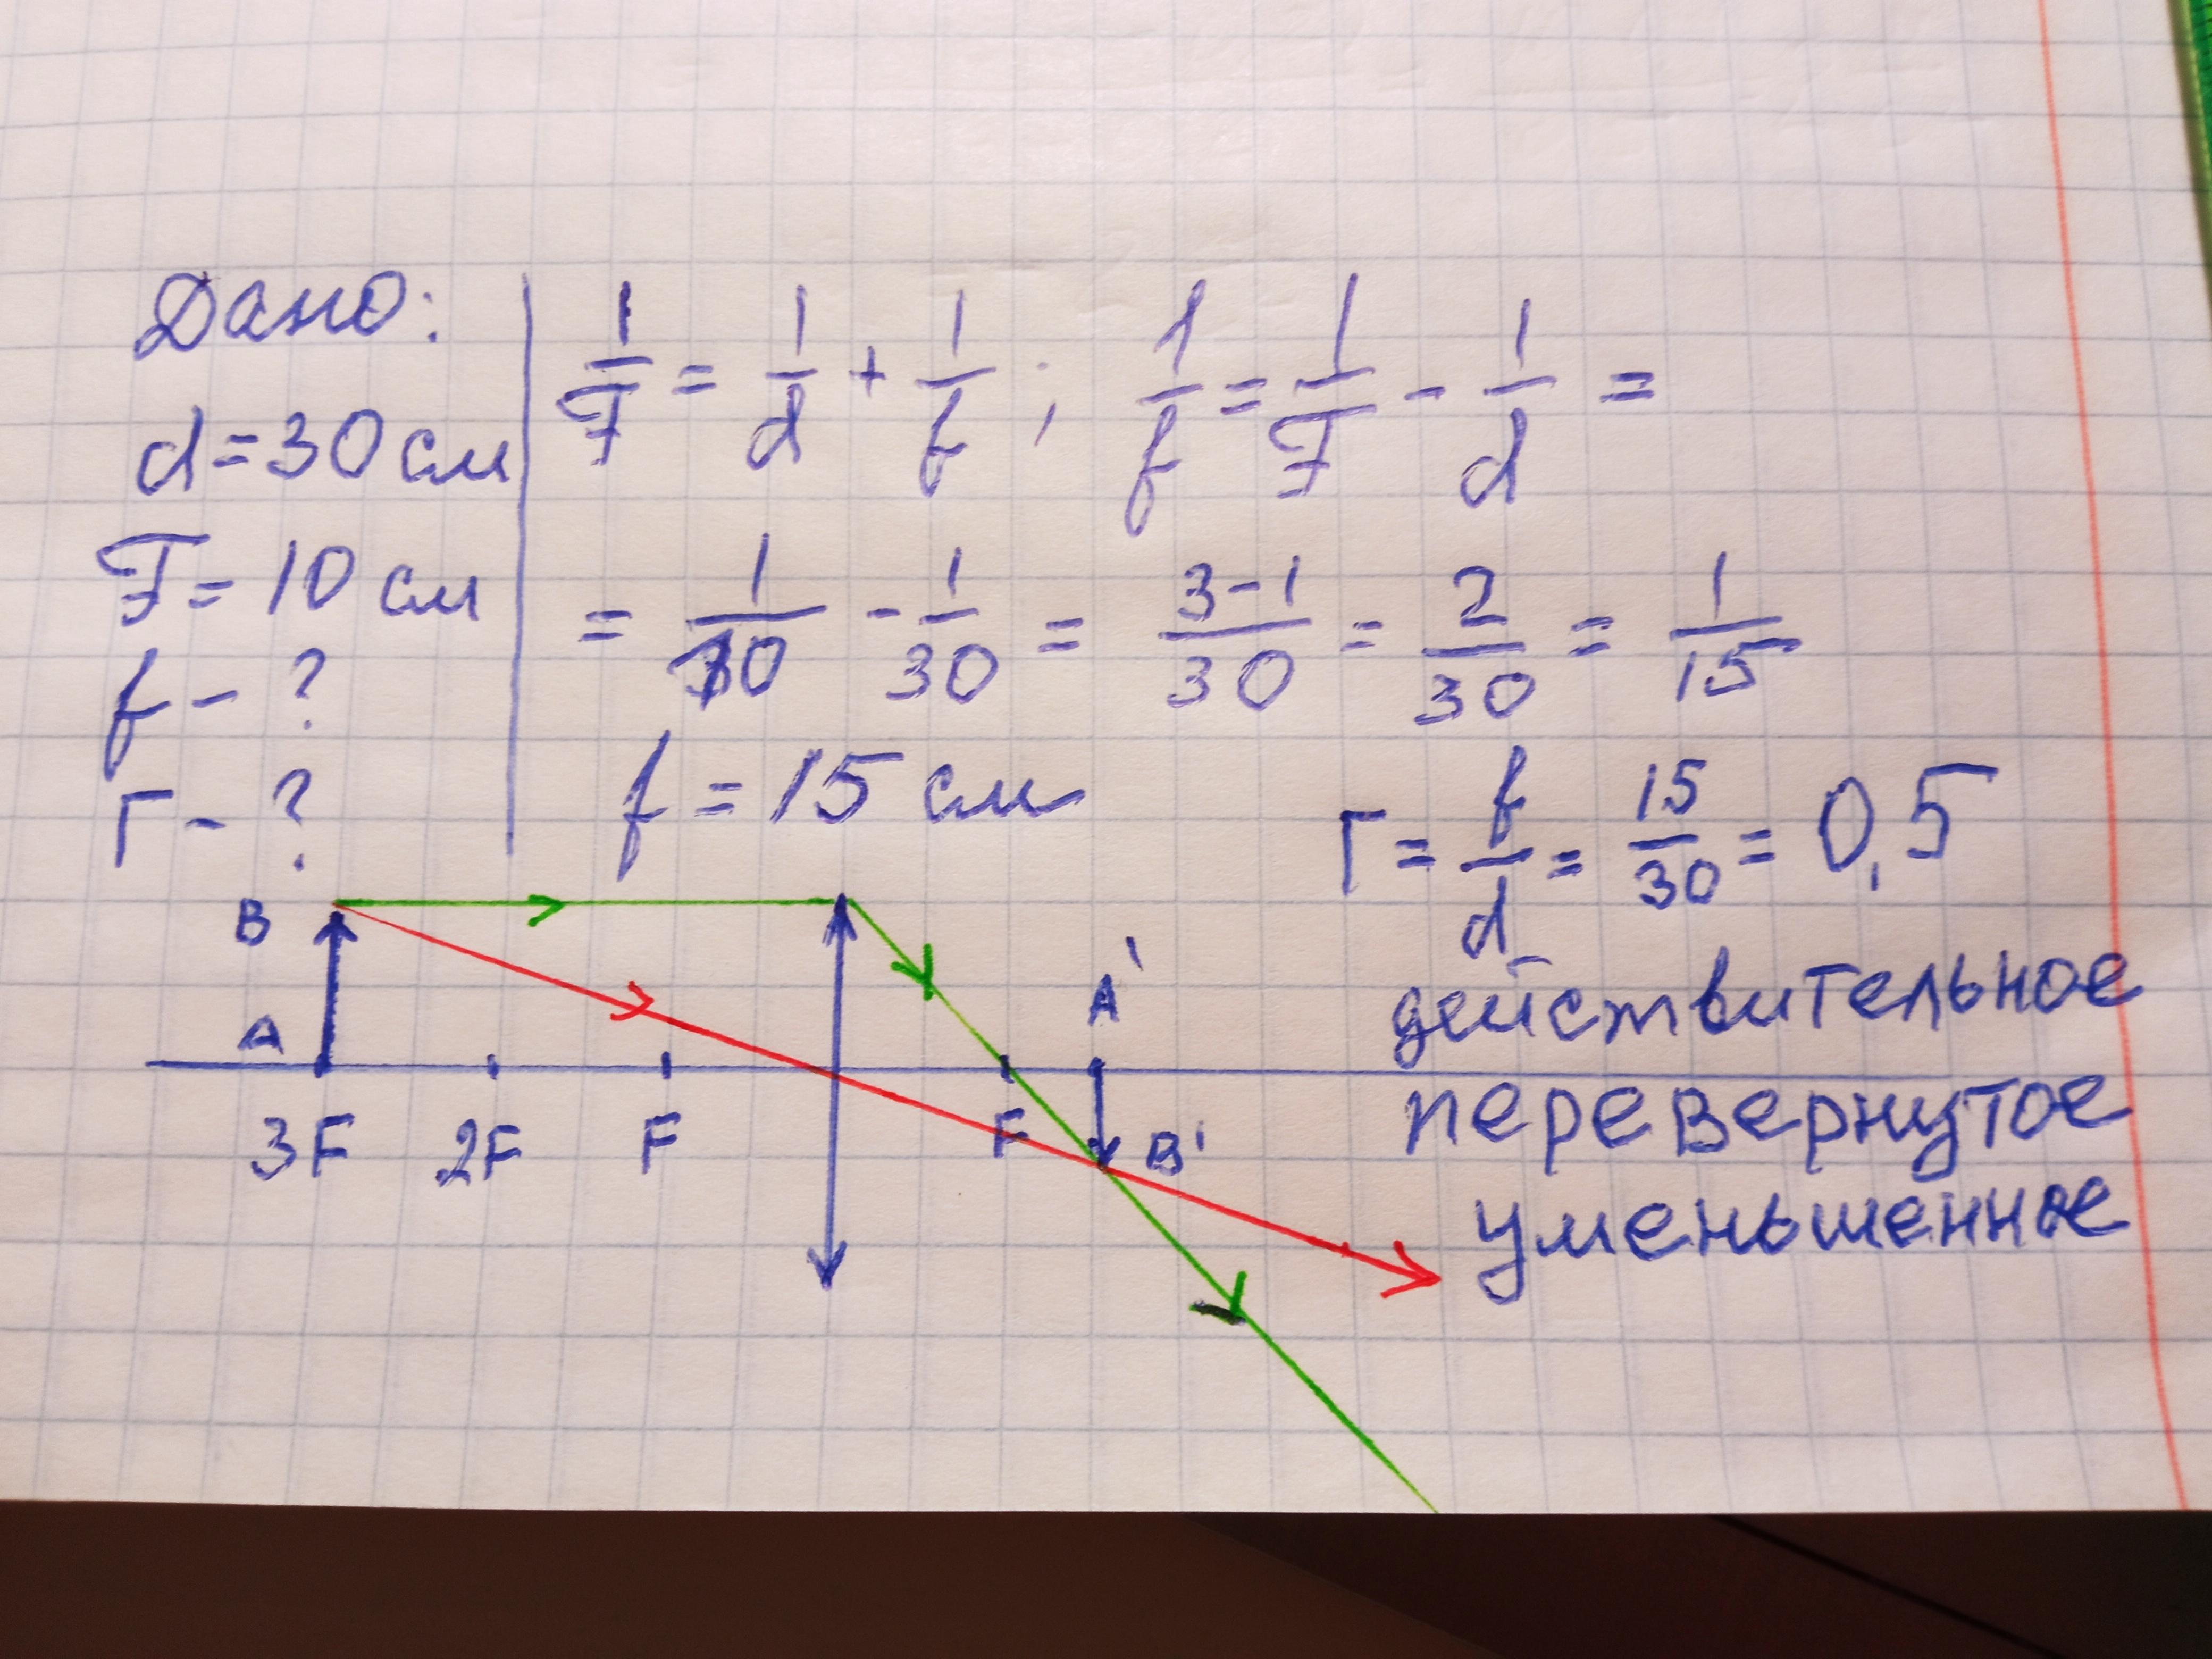 Дано:
d = 30 см
F = 10 см
f - ?
Г - ?
1/F = 1/d + 1/f ; 1/f = 1/F - 1/d =
= 1/10 - 1/30 = 3-1/30 = 2/30 = 1/15
f = 15 см
Г = f/d = 15/30 = 0,5
действительное
перевернутое
уменьшенное
B
A
A'
3F 2F F F B'